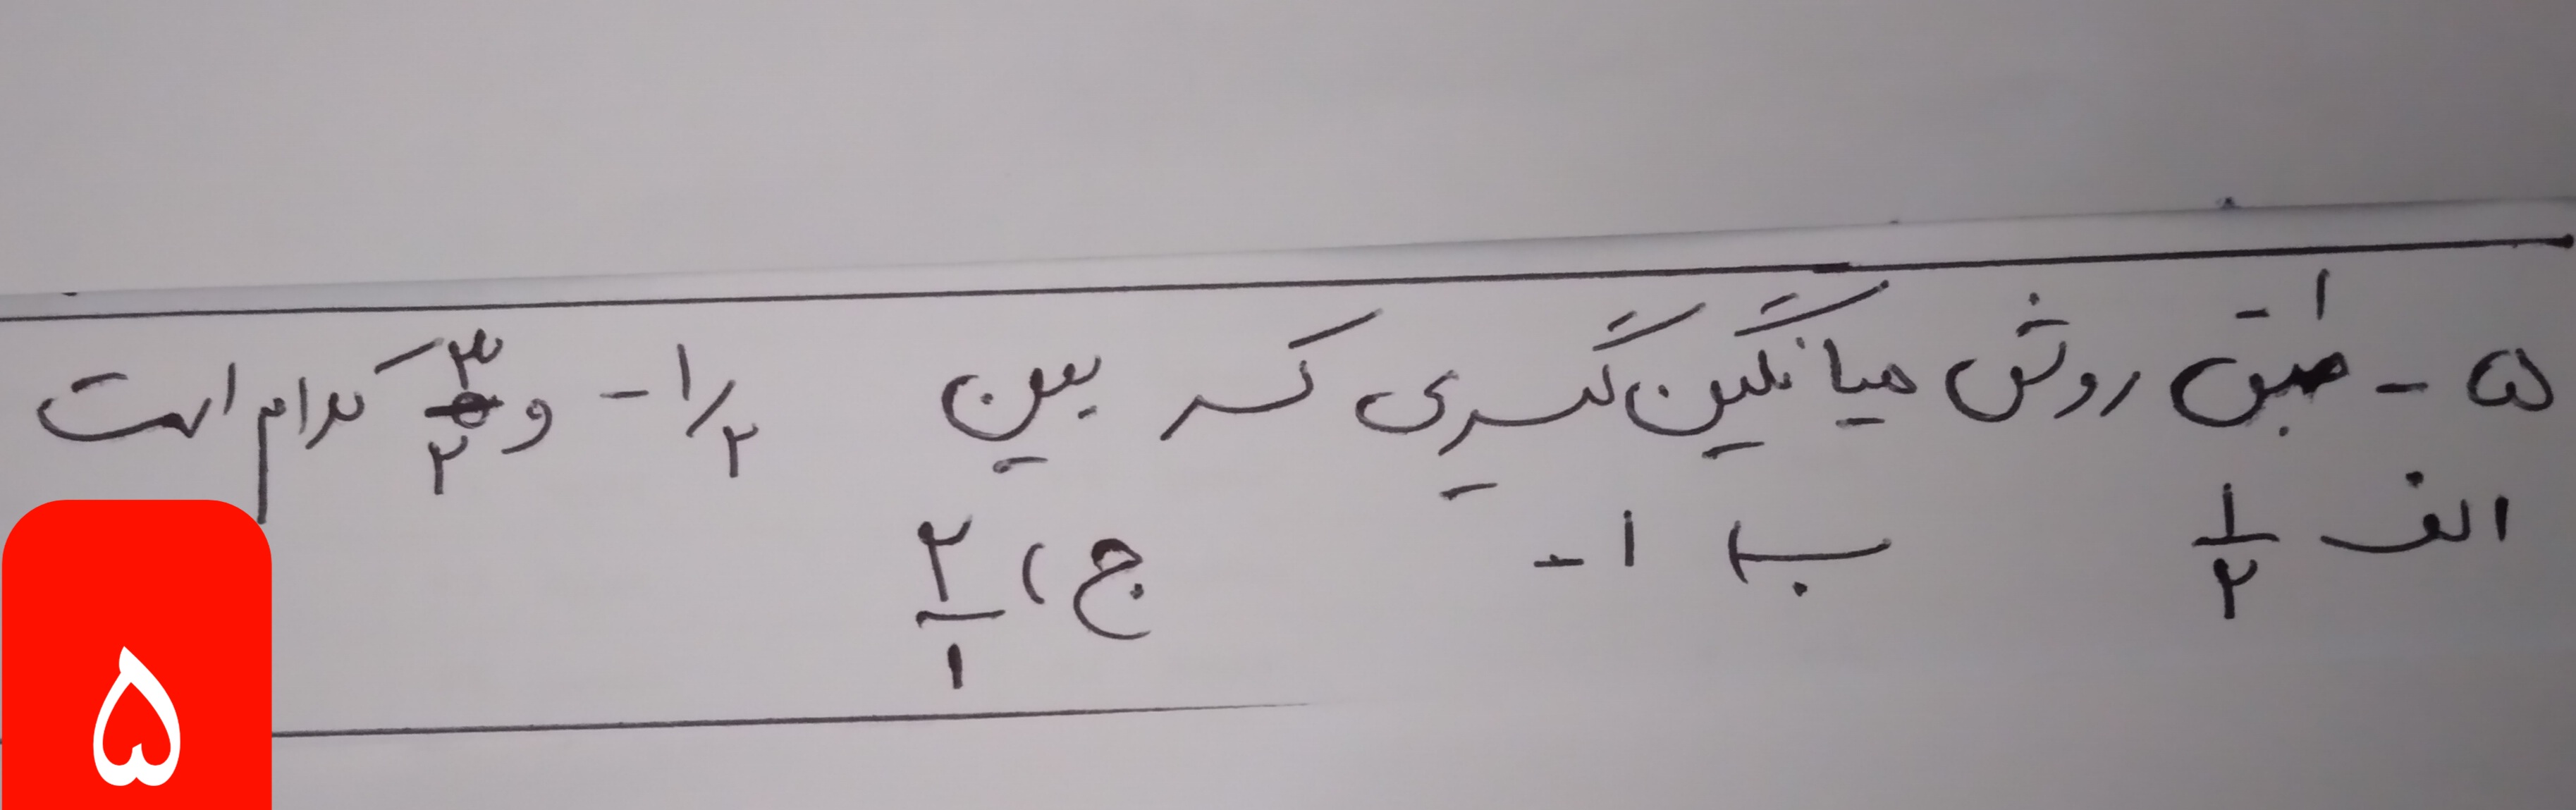 ۵ - طبق روش میانگین گیری کسر بین -۱/۲ و ۳/۲ کدام است
الف ۱/۲ ب) -۱ ج) ۲/۱
۵